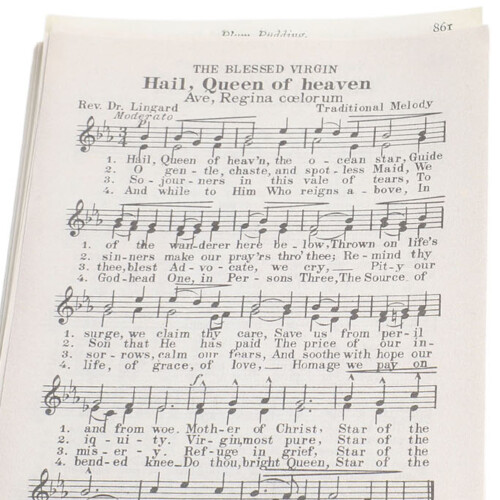 Plum Pudding. 861
THE BLESSED VIRGIN
Hail, Queen of heaven
Ave, Regina cœlorum
Rev. Dr. Lingard Traditional Melody
Moderato
1. Hail, Queen of heav'n, the o-cean star, Guide
2. O gen-tle, chaste, and spot-less Maid, We
3. So-jour-ners in this vale of tears, To
4. And while to Him Who reigns a-bove, In
1. of the wan-derer here be-low, Thrown on life's
2. sin-ners make our pray'rs thro' thee; Re-mind thy
3. thee, blest Ad-vo-cate, we cry, Pit-y our
4. God-head One, in Per-sons Three, The Source of
1. surge, we claim thy care, Save us from per-il
2. Son that He has paid The price of our in-
3. sor-rows, calm our fears, And soothe with hope our
4. life, of grace, of love, Homage we pay on
1. and from woe. Moth-er of Christ, Star of the
2. iq-ui-ty. Vir-gin, most pure, Star of the
3. mis-er-y. Ref-uge in grief, Star of the
4. bend-ed knee. Do thou, bright Queen, Star of the